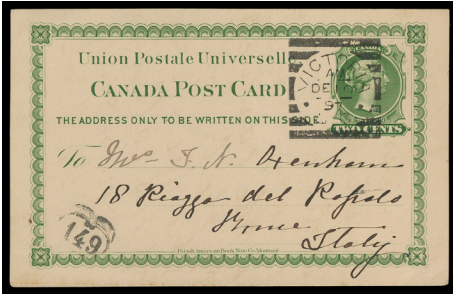 Union Postale Universelle
CANADA POST CARD
THE ADDRESS ONLY TO BE WRITTEN ON THIS SIDE.
CANADA
TWO CENTS
VICTORIA
DE
To Mrs F. N. Oxenham
18 Piazza del Popolo
Rome
Italy
149
British American Bank Note Co. Montreal